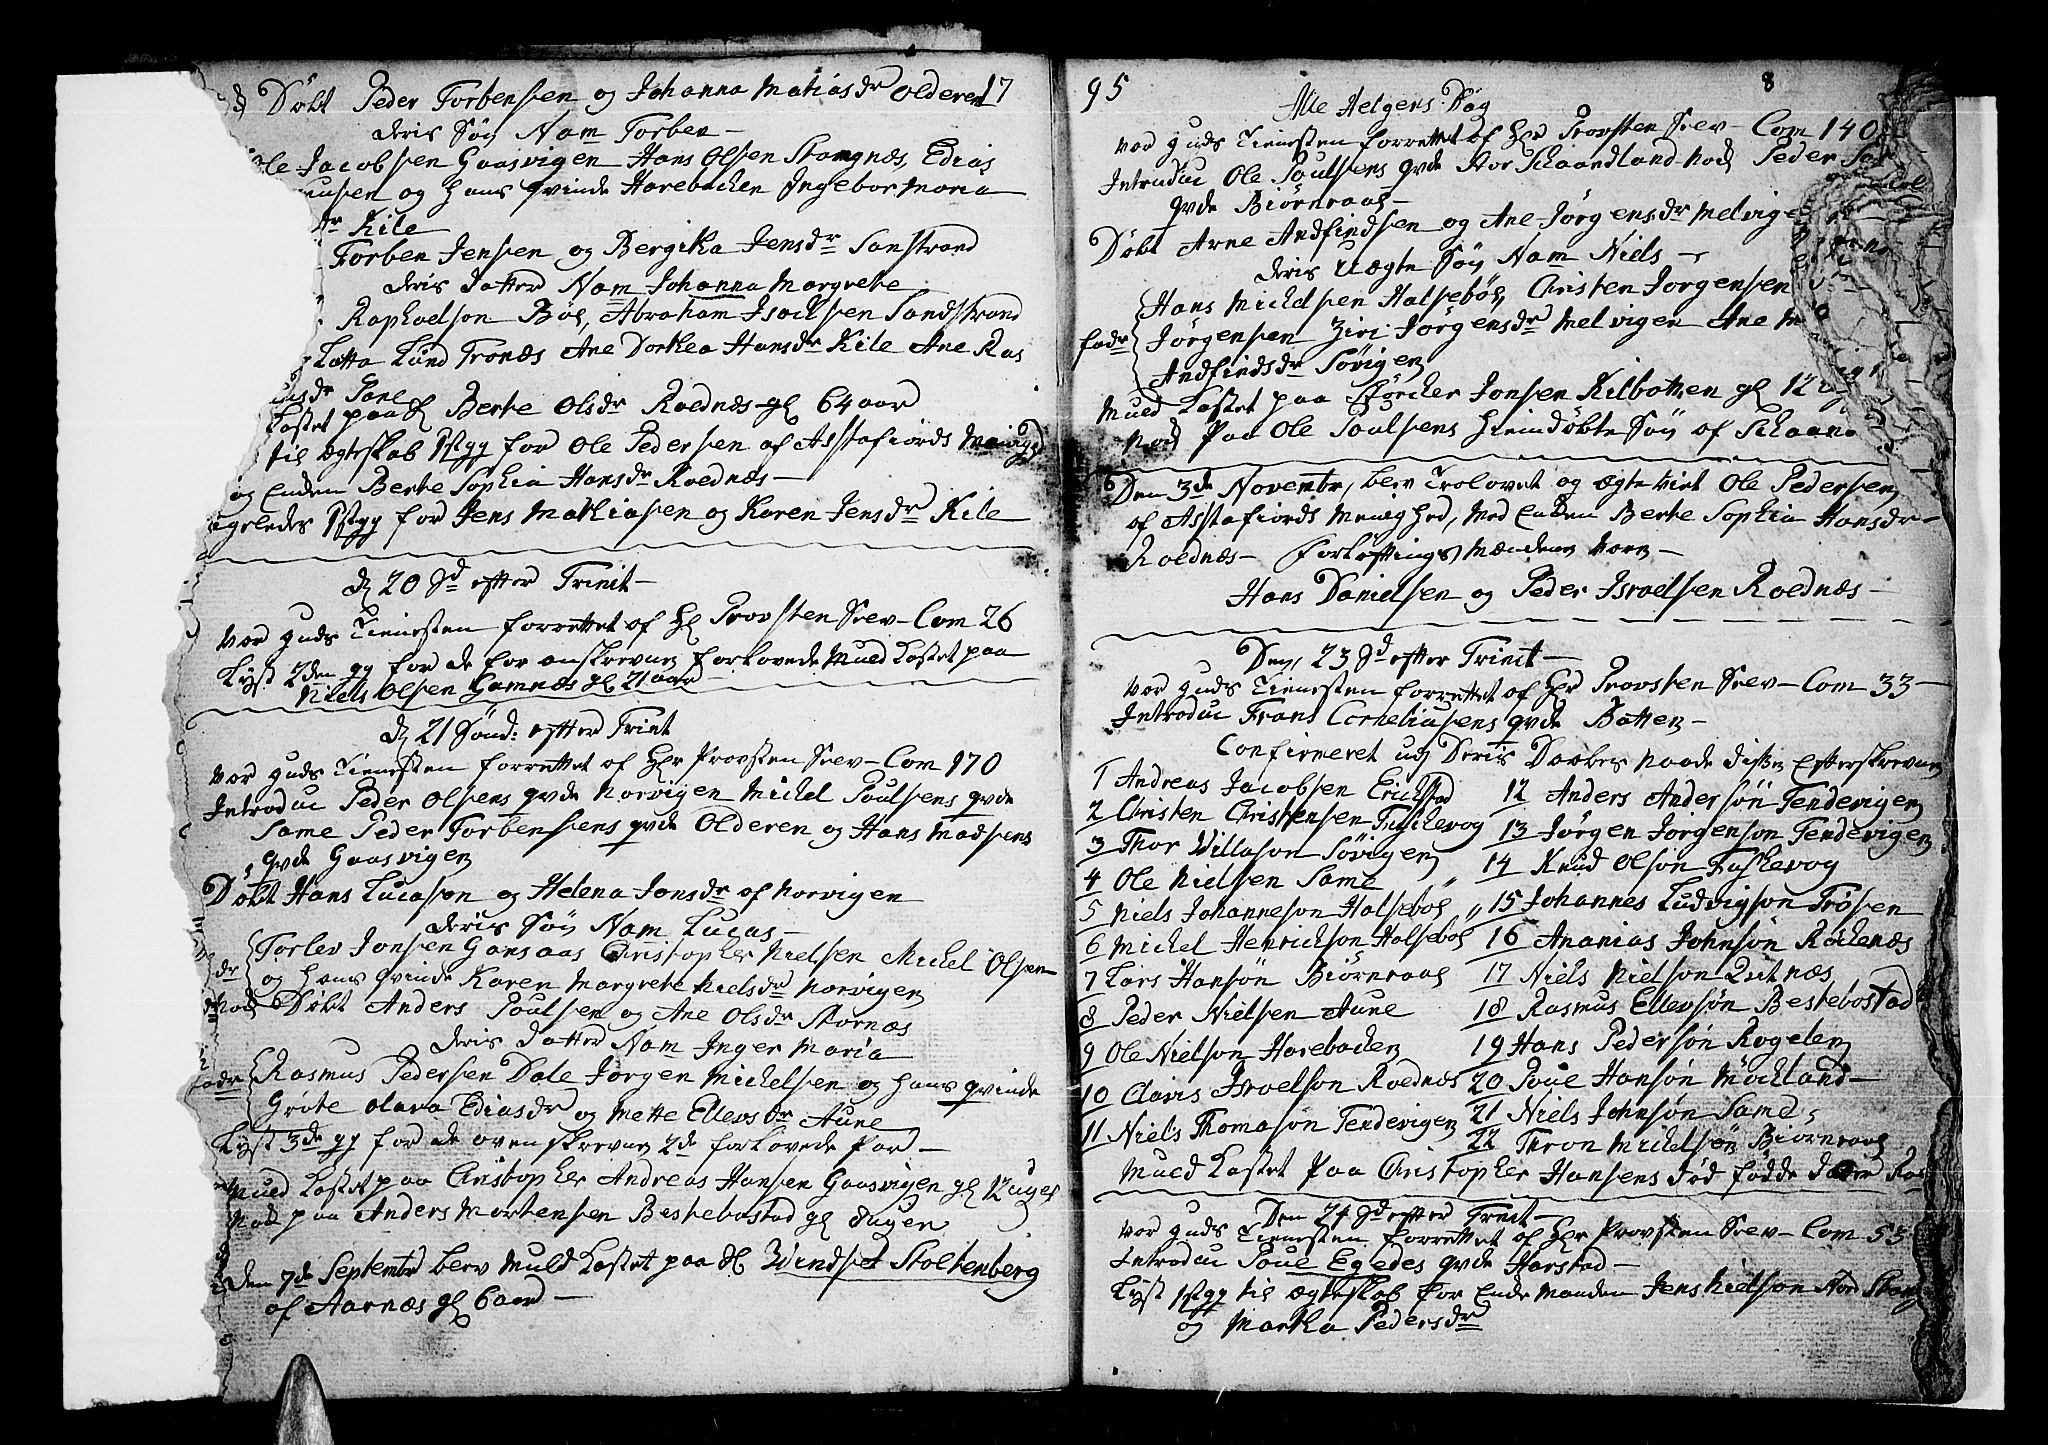 Døbt Peder Torbensen og Johanna Matiasdr Olderen 17
deris Søn Nam Torben –
Ole Jacobsen Gaasvigen Hans Olsen Stangnæs, Edias
og hans qvinde Harebacken Ingebor Maria
dr Kile
Torben Jensen og Bergitha Jensdr Sanstrand
deris datter Nam Johanna Margrete
Raphaelson Bøs, Abraham Isachsen Sandstrand
Lotta Lund Tronæs Ane Dorthea Hansdr Kile Ane Ras
dr Sane
Kastet paa Berte Olsdr Roednæs gl 64 aar
til ægteskab 1st gg for Ole Pedersen af Astafiords
og Enden Berte Sophia Hansdr Roednæs –
1st gg for Jens Mathiasen og Karen Jensdr Kile
d 20 Sd efter Trinit –
Vor guds Tienesten forrettet af Hr Provsten Srev – Com 26
Lyst 2den gg for de for anskrevne forlovede Mued Kastet paa
Niels Olsen Gamnæs gl 21 aar
d 21 Sønd: efter Trinit
Vor guds Tienesten forrettet af Hr Provsten Srev – Com 170
Introduc Peder Olsens qvde Norvigen Michel Poulsens qvde
Same Peder Torbensens qvde Olderen og Hans Madsens
qvde Gaasvigen
Døbt Hans Lucasøn og Helena Jonsdr af Norvigen
deris Søn Nam Lucas –
Torlev Jonsen Gansaas Christopher Nielsen Michel Olsen
og hans qvinde Karen Margrete Nielsdr Norvigen
Nok Døbt Anders Poulsen og Ane Olsdr Stornæs
deris datter Nam Inger Maria
fadr Rasmus Pedersen Dale Jørgen Michelsen og hans qvinde
Grøte Olava Ediasdr og Mette Ellevsdr Aune
Lyst 3de gg for de ovenskrevne 2de forlovede Par –
Mued Kastet paa Christopher Andreas Hansen Gaasvigen gl 12 uger
Nok paa Anders Mortensen Beskebostad gl 8 uger
Den 7de Septembr blev Muld Kastet paa Windset Stoltenberg
af Aarnæs gl 6 aar –
95
8
Alle Helgens Dag
Vor guds Tienesten forrettet af Hr Provsten Srev – Com 140
Introduc Ole Poulsens qvde Nor Schaandland nok Peder
qvde Biørnraas –
Døbt Arne Andfindsen og Ane Jørgensdr Melvigen
deris Uægte Søn Nam Niels –
Hans Michelsen Halsebøs, Christen Jørgensen
fadr Jørgensen Ziri Jørgensdr Melvigen Ane
Andfindsdr Søvigen
Mued Kastet paa Jonsen Kilbotten gl 12
Nok Paa Ole Poulsens hiemdøbte Søn af
Den 3de Novembr, blev Trolovet og ægte viet Ole Pedersen
af Astafiords Menighed, med Enden Berte Sophia Hansdr –
Roednæs – Forløftings Mændene vare –
Hans Danielsen og Peder Israelsen Roednæs –
Den 23 Sd efter Trinit –
Vor guds Tienesten forrettet af Hr Provsten Srev – Com 33 –
Introduc Frans Corneliusens qvde Botten –
Confirmeret udj Deris Daabes naade disse Efterskrevne
1 Andreas Jacobsen Erichstad
2 Christen Christensen Fuskevog
3 Thor Willason Søvigen
4 Ole Nielsen Same
5 Niels Johanneson Halsebøs
6 Michel Henrichson Halsebøs
7 Lars Hansøn Biørnraas
8 Peder Nielsen Aune
9 Ole Nielson Harebacken
10 Clavis Israelson Roednæs
11 Niels Thomasøn Tendevigen
12 Anders Andersøn Tendevigen
13 Jørgen Jørgenson Tendevigen
14 Knud Olsøn Fuskevog
15 Johannes Ludvigson Trøsen
16 Ananias Johnsøn Røckenæs
17 Niels Nielson Qvitnæs
18 Rasmus Ellevsøn Beskebostad
19 Hans Pedersøn Rogelen
20 Poue Hansøn Møckland –
21 Niels Johnsøn Same
22 Thron Michelsøn Biørnraas
Mued Kastet Paa Christopher Hansens død fødde
Den 24 Sd efter Trinit –
Vor guds Tienesten forrettet af Hr Provsten Srev – Com 53
Introduc Poue Egedes qvde Harstad –
Lyst 1st gg til ægteskab for Ende manden Jens Nielson
og Martha Pedersdr